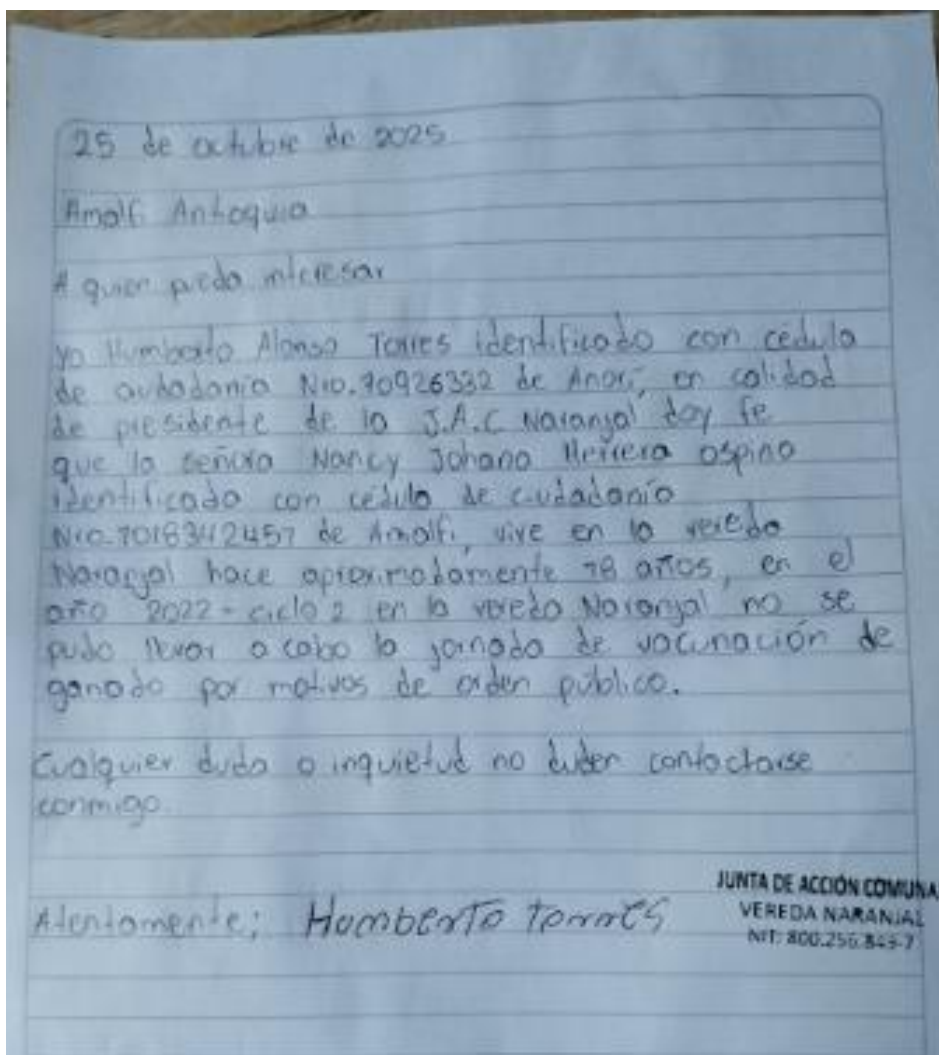 25 de octubre de 2025
Amalfi Antioquia
A quien pueda interesar
yo Humberto Alonso Torres identificado con cédula
de ciudadanía Nro. 70926332 de Anorí, en calidad
de presidente de la J.A.C Naranjal doy fe
que la señora Nancy Johana Herrera Ospino
identificada con cédula de ciudadanía
Nro. 7018342457 de Amalfi, vive en la vereda
Naranjal hace aproximadamente 18 años, en el
año 2022 - ciclo 2 en la vereda Naranjal no se
pudo llevar a cabo la jornada de vacunación de
ganado por motivos de orden público.
Cualquier duda o inquietud no duden contactarse
conmigo.
Atentamente; Humberto Torres
JUNTA DE ACCIÓN COMUNA
VEREDA NARANJAL
NIT: 800.256.843-7